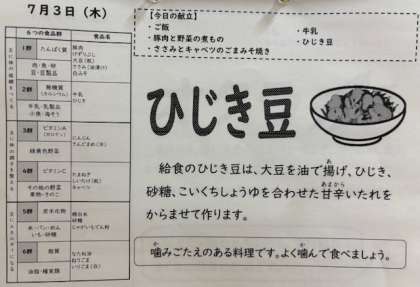 7月3日（木）
6つの食品群
食品名
主に体の組織をつくる
1群
たんぱく質
肉・魚・卵
豆・豆製品
豚肉
けずりぶし
大豆（乾）
ささみ（油漬け）
白みそ
2群
無機質
（カルシウム）
牛乳・乳製品
小魚・海そう
牛乳
ひじき
主に体の調子を整える
3群
ビタミンA
（カロテン）
緑黄色野菜
にんじん
さんどまめ（冷）
4群
ビタミンC
その他の野菜
果物・きのこ
たまねぎ
しいたけ（乾）
キャベツ
主にエネルギーになる
5群
炭水化物
米・パン・めん
いも・砂糖
精白米
砂糖
じゃがいもでん粉
6群
脂質
油脂・種実類
なたね油
ねりごま
いりごま（白）
【今日の献立】
・ご飯
・牛乳
・豚肉と野菜の煮もの
・ひじき豆
・ささみとキャベツのごまみそ焼き
ひじき豆
給食のひじき豆は、大豆を油で揚げ、ひじき、
砂糖、こいくちしょうゆを合わせた甘辛いたれを
からませて作ります。
噛みごたえのある料理です。よく噛んで食べましょう。